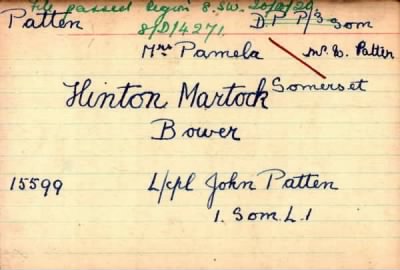 File passed Region 8. S.W. 20/2/29
Patten D.P P/3 Som
8/D/4271.
Mrs Pamela Mr. W. Patten
Hinton Martock Somerset
Bower
15599 L/cpl John Patten
1. Som. L. I